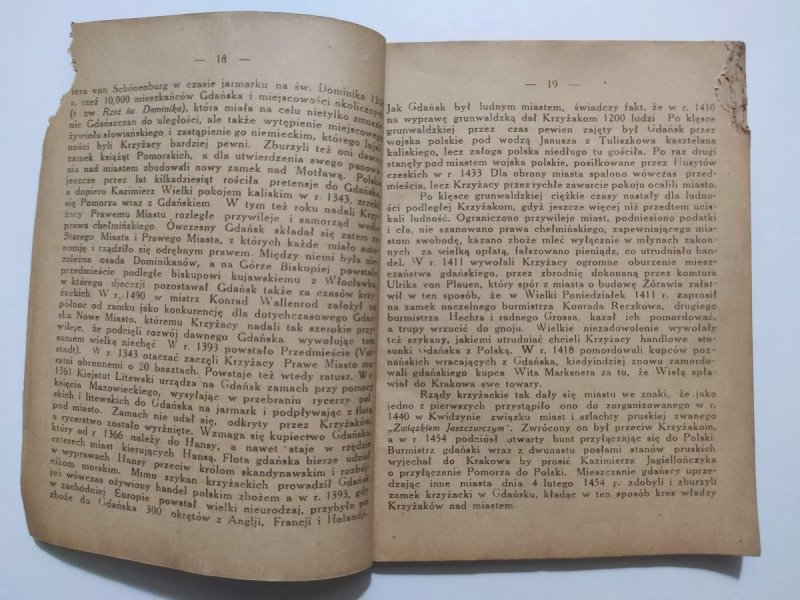 — 18 —
tera von Schönenburg w czasie jarmarku na św. Dominika
r. rzeź 10,000 mieszkańców Gdańska i miejscowości okolicznych
(t zw Rześ św. Dominika), która miała na celu nietylko zmusze-
nie Gdańszczan do uległości, ale także wytępienie miejscowego
żywiołu słowiańskiego i zastąpienie go niemieckim, którego
ności byli Krzyżacy bardziej pewni. Zburzyli też oni dawny
zamek książąt Pomorskich, a dla utwierdzenia swego panowa-
nia nad miastem zbudowali nowy zamek nad Motławą. Polska
jeszcze przez lat kilkadziesiąt rościła pretensje do Gdańska,
a dopiero Kazimierz Wielki pokojem kaliskim w r. 1343, zrzekł
się Pomorza wraz z Gdańskiem W tym też roku nadali Krzy-
żacy Prawemu Miastu rozległe przywileje i samorząd wedle
prawa chełmińskiego. Ówczesny Gdańsk składał się zatem ze
Starego Miasta i Prawego Miasta, z których każde miało auto-
nomję i rządziło się odrębnym prawem. Między niemi była nie-
zależna osada Dominikanów, a na Górze Biskupiej powstało
przedmieście podległe biskupowi kujawskiemu z Włocławka,
w którego djecezji pozostawał Gdańsk także za czasów krzy-
żackich W r. 1490 w mistrz Konrad Wallenrod założył na
północ od zamku jako konkurencję dla dotychczasowego Gdań-
ska Nowe Miasto, któremu Krzyżacy nadali tak szerokie przy-
wileje, że podcięli rozwój dawnego Gdańska wywołując tem
samem wielką niechęć W r. 1393 powstało Przedmieście (Vor-
stadt). W r. 1343 otaczać zaczęli Krzyżacy Prawe Miasto mu-
rami obronnemi o 20 basztach. Powstaje też wtedy ratusz. W r.
1361 Kiejstut Litewski urządza na Gdańsk zamach przy pomocy
księcia Mazowieckiego, wysyłając w przebraniu rycerzy pol-
skich i litewskich do Gdańska na jarmark i podpływając z flotą
pod miasto. Zamach nie udał się, odkryty przez Krzyżaków,
a rycerstwo zostało wyrżnięte. Wzmaga się kupiectwo Gdańska,
który od r 1366 należy do Hansy, a nawet staje w rzędzie
czterech miast kierujących Hansą. Flota gdańska bierze udział
w wyprawach Hansy przeciw królom skandynawskim i rozbój-
nikom morskim. Mimo szykan krzyżackich prowadził Gdańsk
już wówczas ożywiony handel polskim zbożem a w r. 1393, gdy
w zachodniej Europie powstał wielki nieurodzaj, przybyło po
zboże do Gdańska 300 okrętów z Anglji, Francji i Holandji.
— 19 —
Jak Gdańsk był ludnym miastem, świadczy fakt, że w r. 1410
na wyprawę grunwaldzką dał Krzyżakom 1200 ludzi Po klęsce
grunwaldzkiej przez czas pewien zajęty był Gdańsk przez
wojska polskie pod wodzą Janusza z Tuliszkowa kasztelana
kaliskiego, lecz załoga polska niedługo tu gościła. Po raz drugi
stanęły pod miastem wojska polskie, posiłkowane przez Husytów
czeskich w r 1433 Dla obrony miasta spalono wówczas przed-
mieścia, lecz Krzyżacy przez rychłe zawarcie pokoju ocalili miasto.
Po klęsce grunwaldzkiej ciężkie czasy nastały dla ludno-
ści podległej Krzyżakom, gdyż jeszcze więcej niż przedtem ucis-
kali ludność. Ograniczono przywileje miast, podniesiono podatki
i cła, nie szanowano prawa chełmińskiego, zapewniającego mia-
stom swobodę, kazano zboże mleć wyłącznie w młynach zakon-
nych za wielką opłatą, fałszowano pieniądz, co utrudniało han-
del. W r. 1411 wywołali Krzyżacy ogromne oburzenie miesz-
czaństwa gdańskiego, przez zbrodnię dokonaną przez komtura
Ulrika von Plauen, który spór z miasta o budowę Żórawia załat-
wił w ten sposób, że w Wielki Poniedziałek 1411 r. zaprosił
na zamek naczelnego burmistrza Konrada Reczkowa, drugiego
burmistrza Hechta i radnego Grossa, kazał ich pomordować,
a trupy wrzucić do gnoju. Wielkie niezadowolenie wywołały
też szykany, jakiemi utrudniać chcieli Krzyżacy handlowe sto-
sunki Gdańska z Polską. W r. 1418 pomordowali kupców poz-
nańskich wracających z Gdańska, kiedyindziej znowu zamordo-
wali gdańskiego kupca Wita Marksnera za to, że Wisłą spła-
wiał do Krakowa swe towary.
Rządy krzyżackie tak dały się miastu we znaki, że jako
jedno z pierwszych przystąpiło ono do zorganizowanego w r.
1440 w Kwidzynie związku miast i szlachty pruskiej zwanego
„Związkiem Jaszczurczym". Zwrócony on był przeciw Krzyżakom,
a w r 1454 podniósł otwarty bunt przyłączając się do Polski
Burmistrz gdański wraz z dwunastu posłami stanów pruskich
wyjechał do Krakowa by prosić Kazimierza Jagiellończyka
o przyłączenie Pomorza do Polski. Mieszczanie gdańscy uprze-
dzając inne miasta dnia 4 lutego 1454 r. zdobyli i zburzyli
zamek krzyżacki w Gdańsku, kładąc w ten sposób kres władzy
Krzyżaków nad miastem.